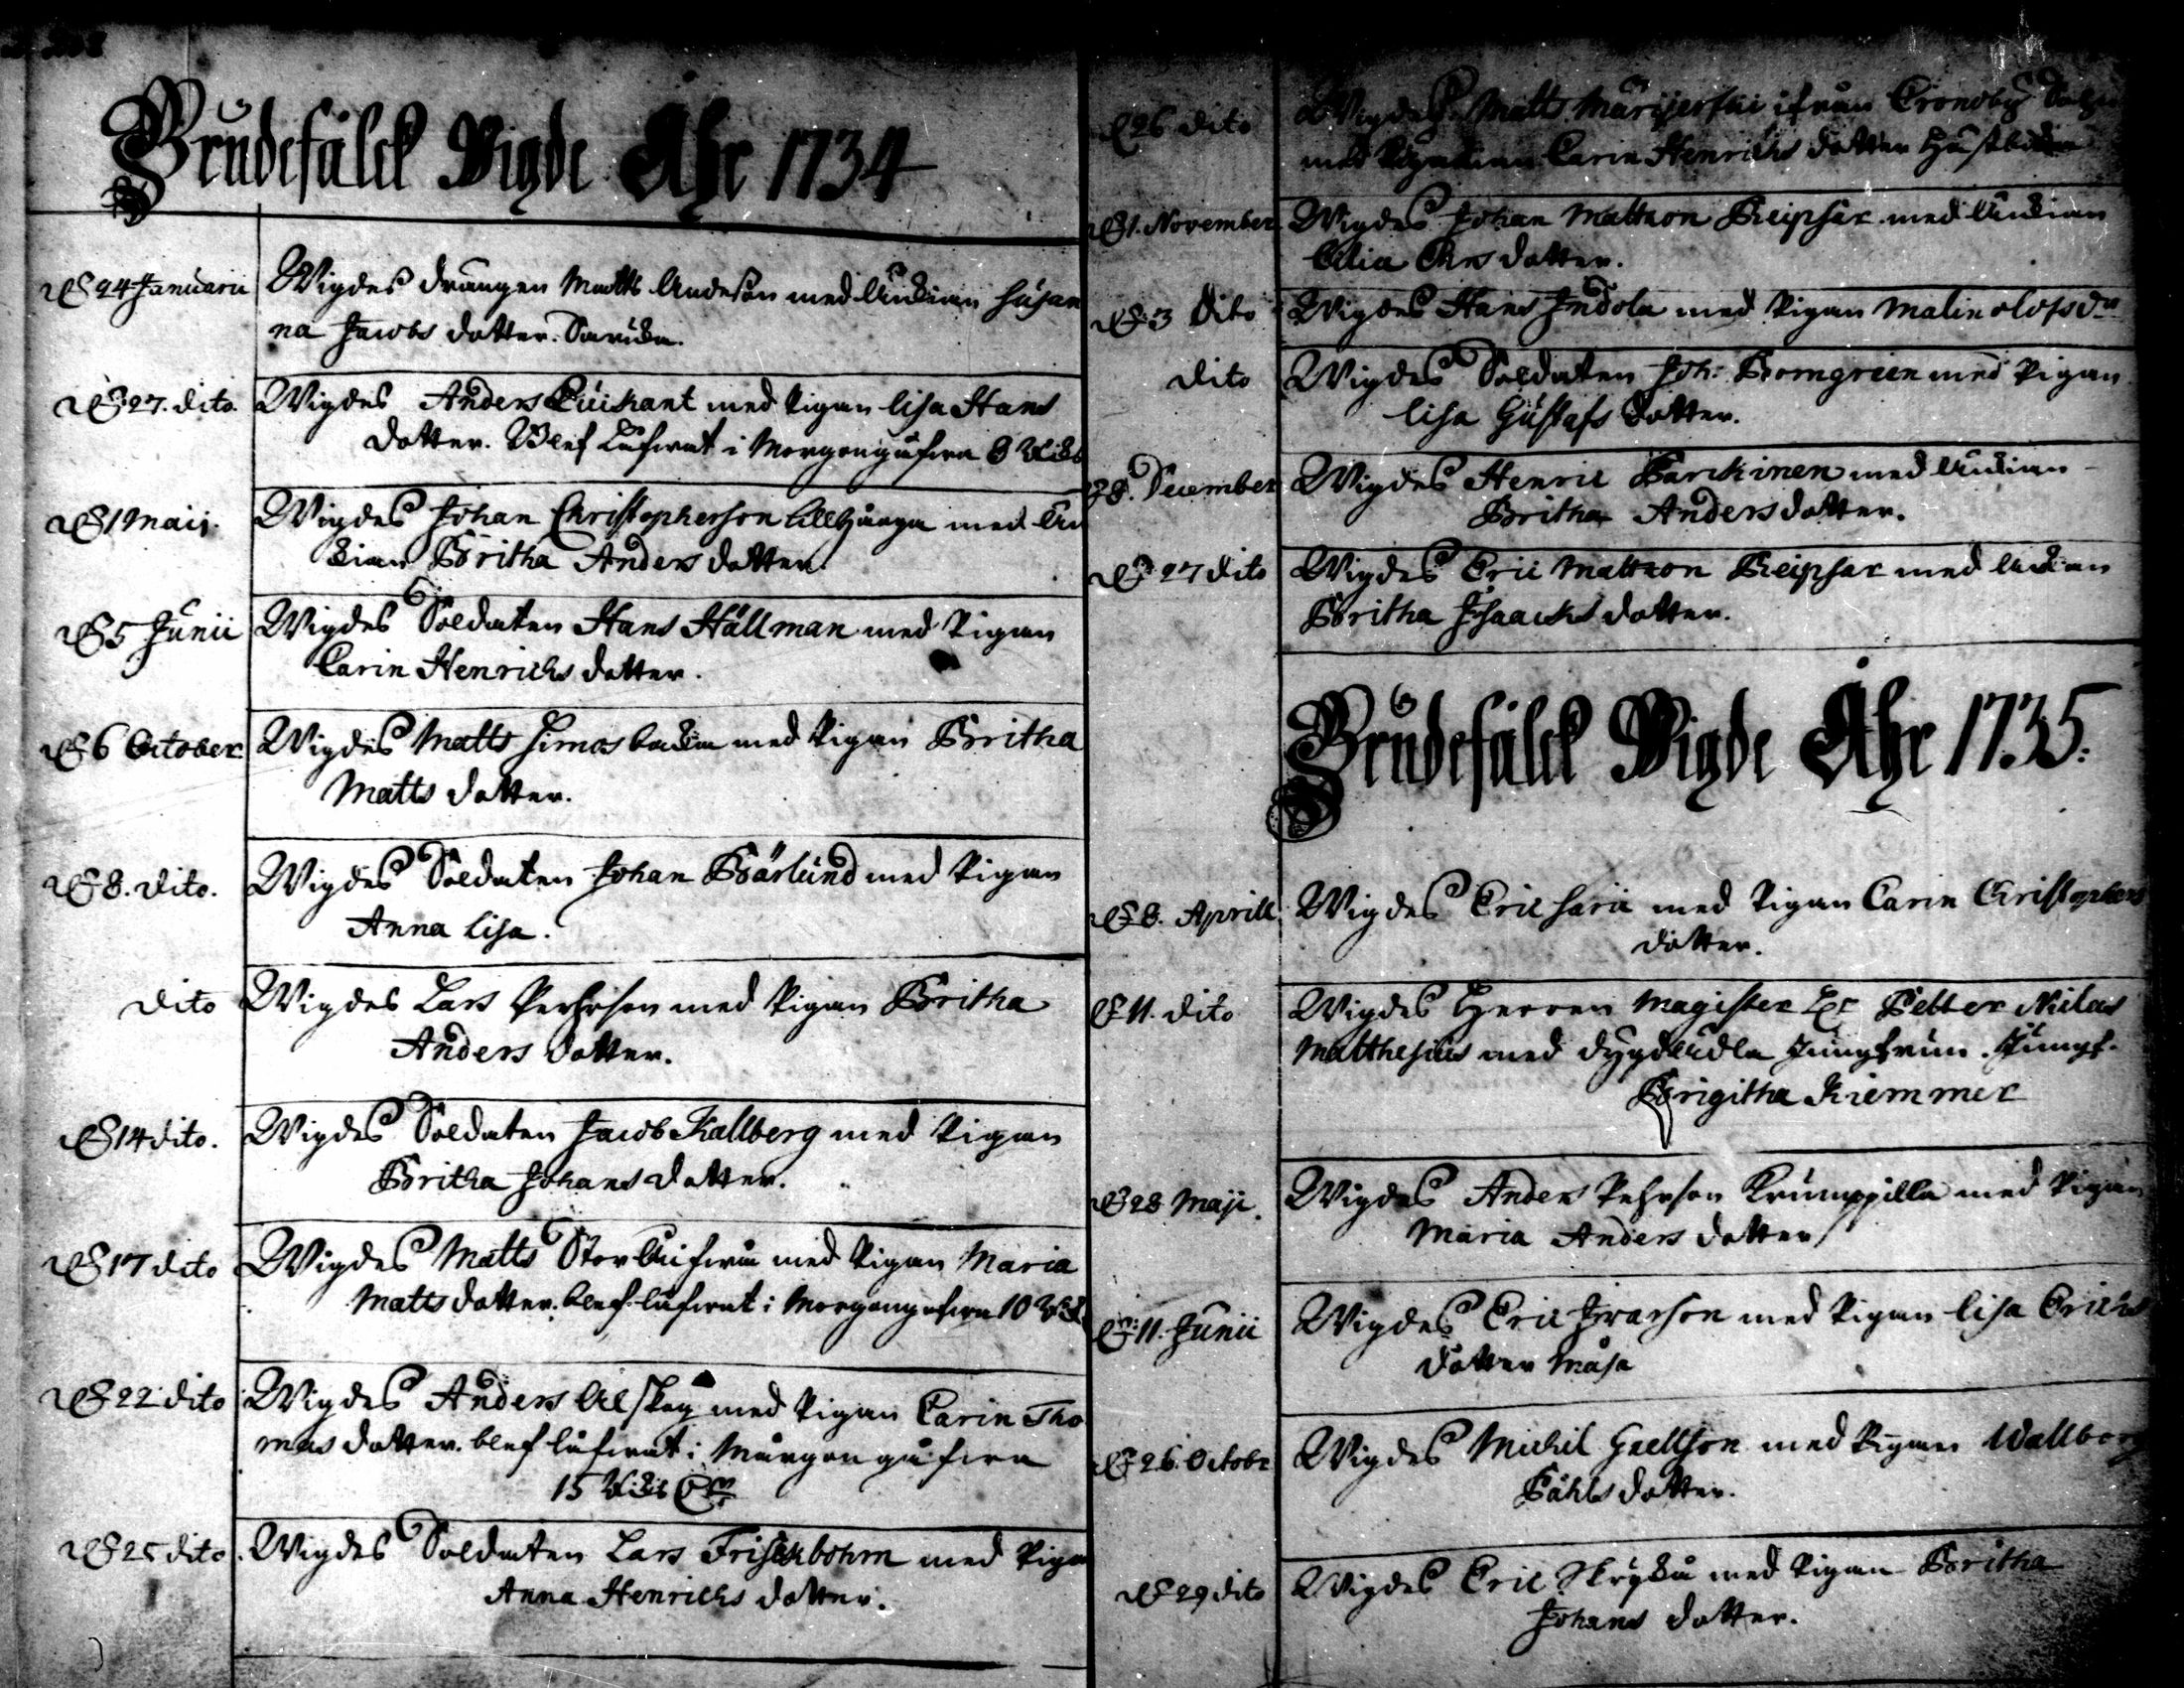 Brudefålck Vigde Åhr 1734
d. 24 Januarii Wigdes drängen Matts Anderson med Änckian Susan
na Jacobs dotter.
d. 27. dito. Wigdes Anders med Pigan Lisa Hans
dotter. Blef lofwat i Morgongåfwa 8
d. 1 Maij. Wigdes Johan Christopherson med Än
kian Britha Anders dotter.
d. 5 Junii Wigdes Soldaten Hans Hällman med Pigan
Carin Henrichs dotter.
d. 6 October Wigdes Matts Simos med Pigan Britha
Matts dotter.
d. 8. dito. Wigdes Soldaten Johan Bärlund med Pigan
Anna Lisa.
dito Wigdes Lars Pehrson med Pigan Britha
Anders dotter.
d. 14 dito. Wigdes Soldaten Jacob Kallberg med Pigan
Britha Johans dotter.
d. 17 dito Wigdes Matts med Pigan Maria
Matts dotter. blef lofwat i Morgongåfwa 10
d. 22 dito Wigdes Anders med Pigan Carin Tho
mas dotter. blef lofwat i Morgongåfwa
15
d. 25 dito. Wigdes Soldaten Lars Frisckbohm med Pigan
Anna Henrichs dotter.
d. 26 dito Wigdes Matts ifrån Cronoby
med Carin Henrichs dotter
d. 1. November Wigdes Johan Mattson Reipsar med Änckian
dotter.
d. 3 dito Wigdes Hans Indola med Pigan Malin Olofs dr
dito Wigdes Soldaten Joh: Bomgreen med Pigan
Lisa Gustafs dotter.
28. December Wigdes Henric Barckinen med Änckian
Britha Anders dotter.
d. 27 dito Wigdes Eric Mattson Reipsar med Änckian
Britha Isaachs dotter.
Brudefålck Vigde Åhr 1735.
d. 8. Aprill Wigdes Eric med Pigan Carin Christophers
dotter.
d. 11. dito Wigdes Herren Magister Hr Petter Niclas
Matthesius med dygdädla Jungfrun. Jungf.
Brigitha Kremmer
d. 28 Maji. Wigdes Anders Pehrson Krumppilla med Pigan
Maria Anders dotter
d. 11. Junii Wigdes Eric Iwarson med Pigan Lisa Erichs
dotter
d. 26. Octobr Wigdes Michel Grelsson med Pigan Wallborg
Påhls dotter.
d. 29 dito Wigdes Eric med Pigan Britha
Johans dotter.